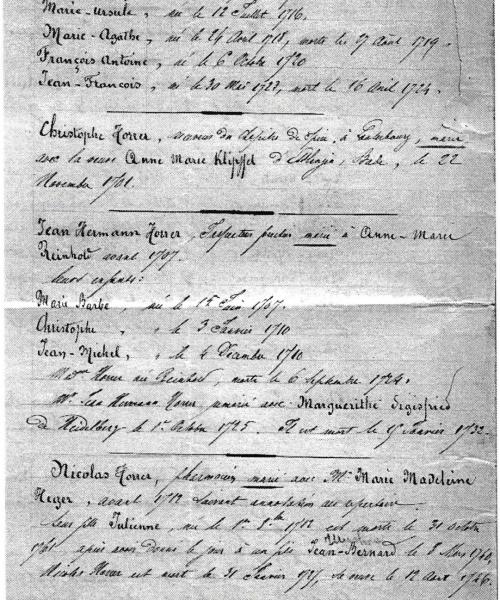 Marie-Ursule, né le 12 Juillet 1716.
Marie-Agathe, né le 24 Avril 1718, morte le 27 Août 1719.
François Antoine, né le 6 Octobre 1720
Jean-François, né le 30 Mai 1723, mort le 16 Avril 1724.
Christophe Horrer, du de Spire, à marié
avec la veuve Anne Marie Klipffel d' Bade, le 22
Novembre 1701.
Jean Hermann Horrer, marié à Anne-Marie
Reinhold avant 1707.
leurs enfants:
Marie Barbe, née le 15 Juin 1707.
Christophe " " le 3 Janvier 1710
Jean-Michel, " " le 4 Décembre 1710
Horrer née Reinhold, morte le 6 Septembre 1724.
Mr. Jean Hermann Horrer avec Marguerithe Sigisfried
de Heidelberg le 1er Octobre 1725. Il est mort le Janvier 1732.
Nicolas Horrer, pharmacien marié avec Mlle Marie Madeleine
Heger, avant 1712 suivant annotation au repertoire.
Leur fille Julienne, née le 1er 8bre 1712 est morte le 31 octobre
1761 après avoir donné le jour à un fils Jean-Bernard le 8 Mars 1740,
Nicolas Horrer est mort le 31 Janvier 1737, le 12 Août 1746.